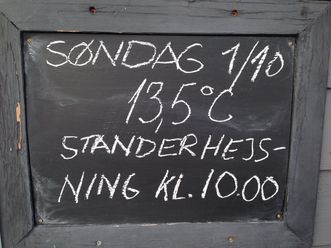 SØNDAG 1/10
13,5°C
STANDERHEJS-
NING KL. 10.00